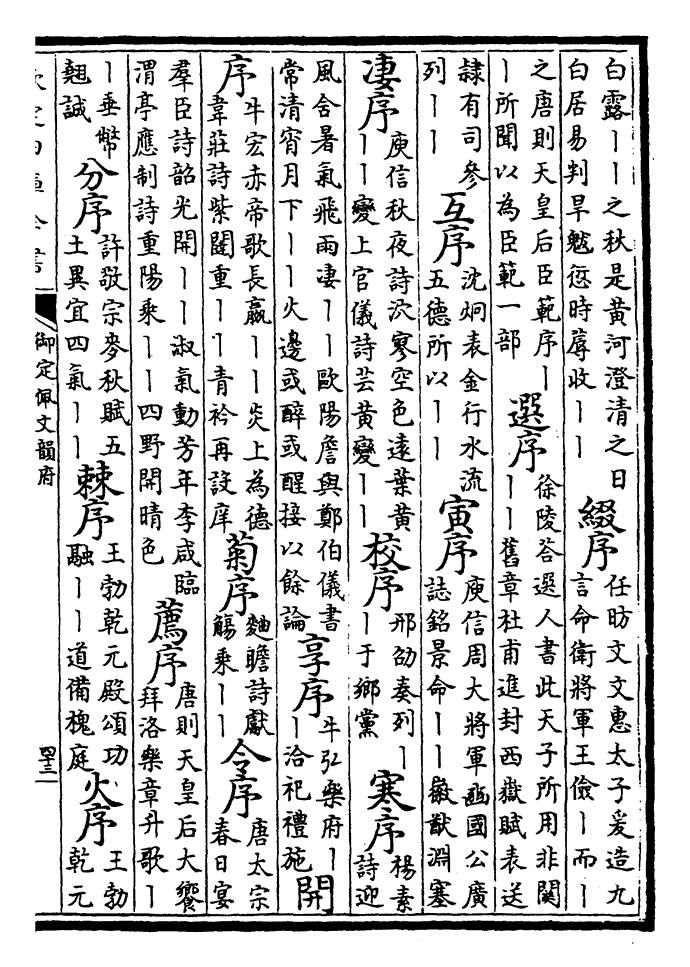 白露丨丨之秋是黃河澄清之日
白居易判旱魃愆時蓐收丨丨
綴序
任昉文文惠太子爰造九
言命衛將軍王儉丨而丨
之唐則天皇后臣範序丨
丨所聞以為臣範一部
選序
徐陵荅選人書此天子所用非關
丨丨舊章杜甫進封西嶽賦表送
隷有司參
列丨丨
互序
沈炯表金行水流
五德所以丨丨
寅序
庾信周大將軍豳國公廣
誌銘景命丨丨徽猷淵塞
凄序
庾信秋夜詩泬寥空色遠葉黄
丨丨變上官儀詩芸黄變丨丨
校序
邢劭奏列丨
丨于鄉黨
寒序
楊素
詩迎
風舍暑氣飛雨凄丨丨歐陽詹與鄭伯儀書
常清宵月下丨丨火邊或醉或醒接以餘論
享序
牛弘樂府丨
丨洽祀禮施
開
序
牛宏赤帝歌長嬴丨丨炎上為德
韋莊詩紫闥重丨丨青衿再設庠
菊序
麯瞻詩獻
觴乘丨丨
令序
唐太宗
春日宴
羣臣詩韶光開丨丨淑氣動芳年李咸臨
渭亭應制詩重陽乘丨丨四野開晴色
薦序
唐則天皇后大饗
拜洛樂章升歌丨
丨垂幣
翹誠
分序
許敬宗麥秋賦五
土異宜四氣丨丨
棘序
王勃乾元殿頌功
融丨丨道備槐庭
火序
王勃
乾元
欽定四庫全書
御定佩文韻府
四十三